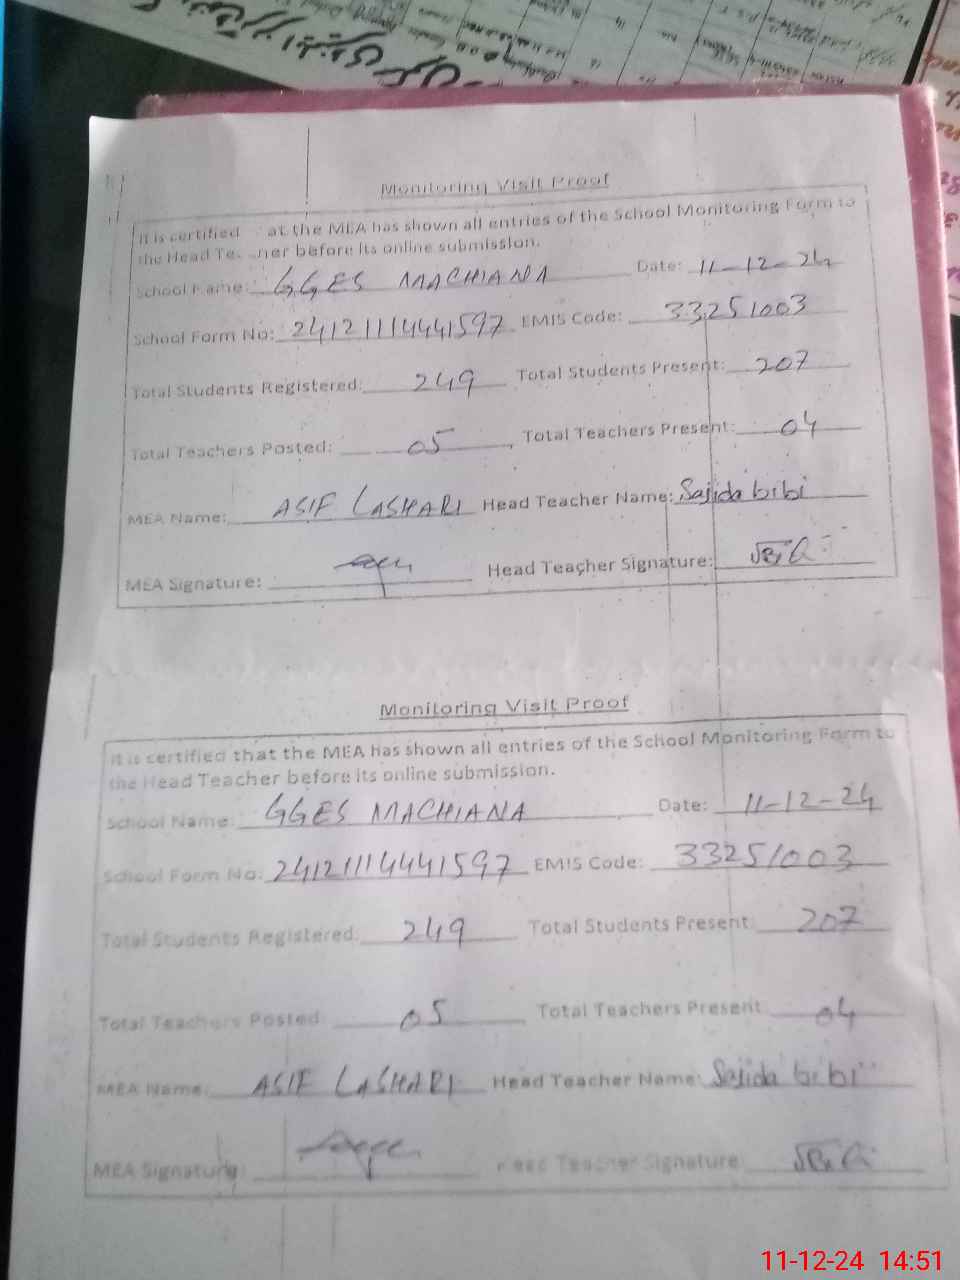 Monitoring Visit Proof
It is certified at the MEA has shown all entries of the School Monitoring Form to
the Head before its online submission.
School Name: GGES MACHIANA Date: 11-12-24
School Form No: 24121114441597 EMIS Code: 33251003
Total Students Registered: 249 Total Students Present: 207
Total Teachers Posted: 05 Total Teachers Present: 04
MEA Name: ASIF LASHARI Head Teacher Name: Sajida bibi
MEA Signature: Head Teacher Signature:
Monitoring Visit Proof
It is certified that the MEA has shown all entries of the School Monitoring Form to
the Head Teacher before its online submission.
School Name: GGES MACHIANA Date: 11-12-24
School Form No: 24121114441597 EMIS Code: 33251003
Total Students Registered: 249 Total Students Present: 207
Total Teachers Posted: 05 Total Teachers Present: 04
MEA Name: ASIF LASHARI Head Teacher Name: Sajida bibi
MEA Signature: Head Teacher Signature:
11-12-24 14:51